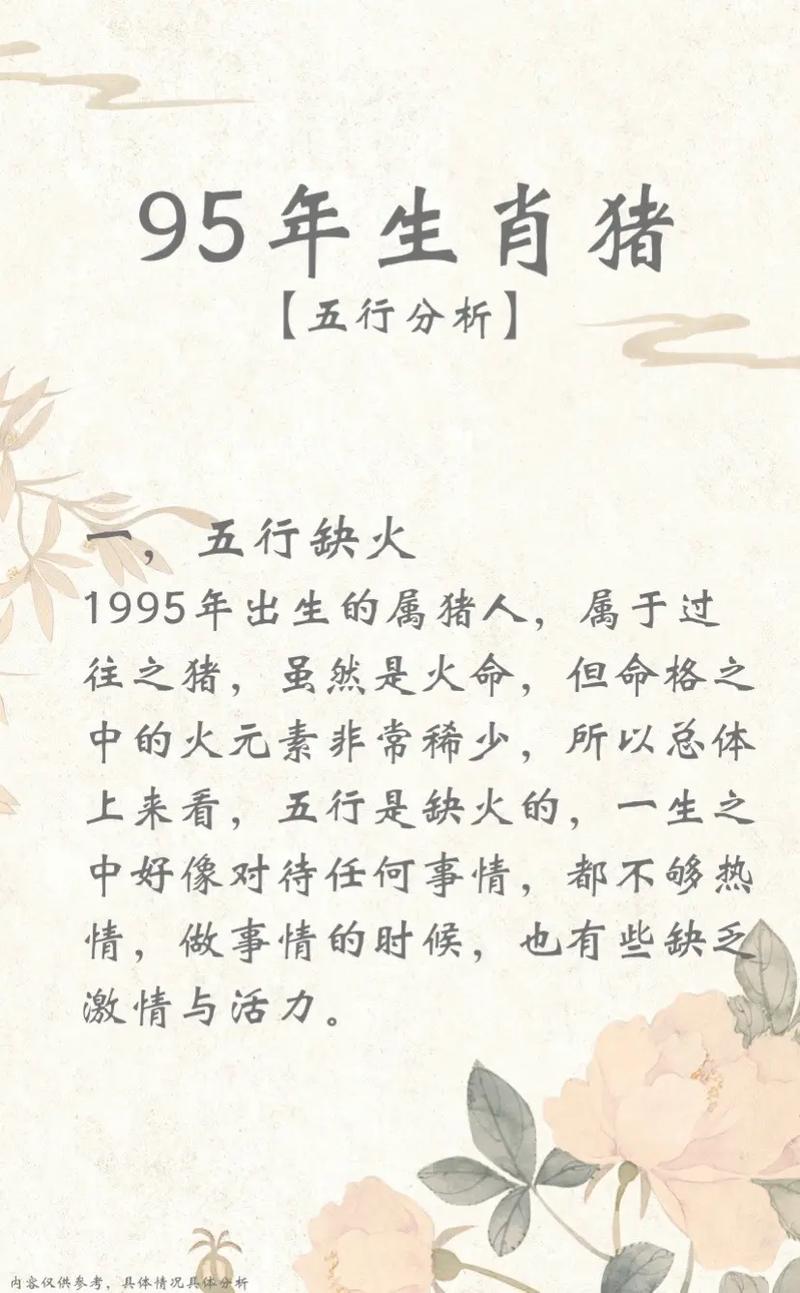 95年生肖猪
【五行分析】
一，五行缺火
1995年出生的属猪人，属于过
往之猪，虽然是火命，但命格之
中的火元素非常稀少，所以总体
上来看，五行是缺火的，一生之
中好像对待任何事情，都不够热
情，做事情的时候，也有些缺乏
激情与活力。
内容仅供参考，具体情况具体分析